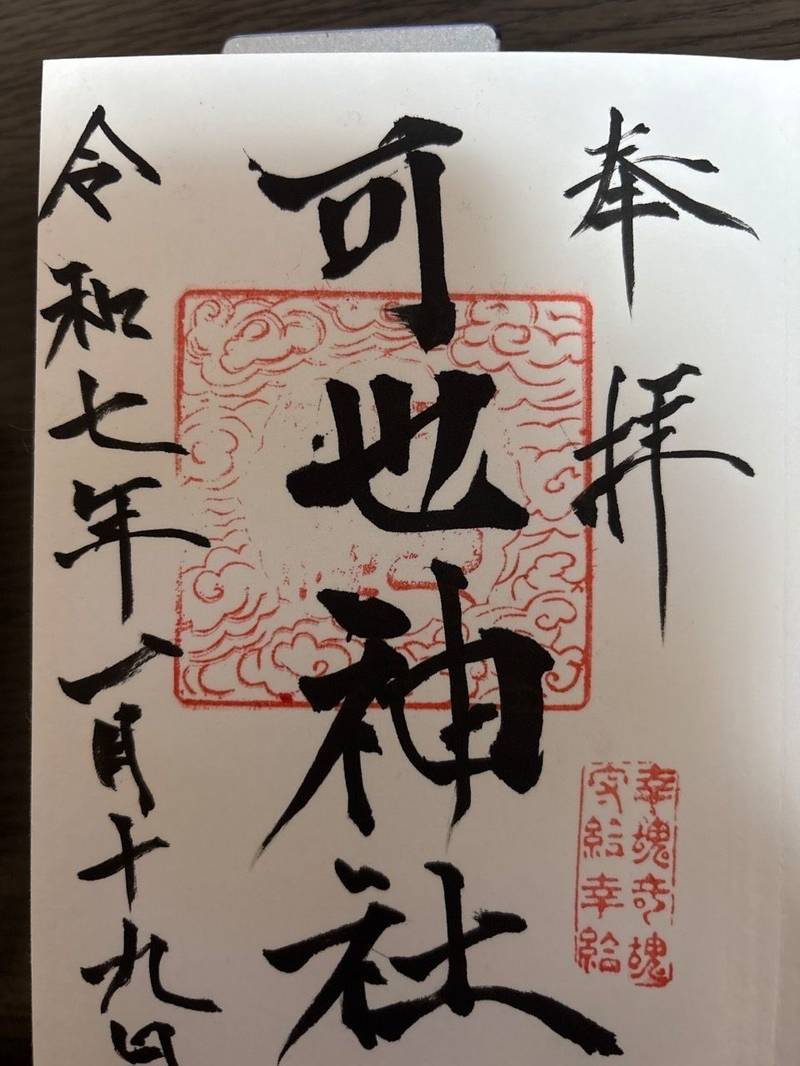 奉拝
幸魂奇魂
守給幸給
可也神社
令和七年一月十九日